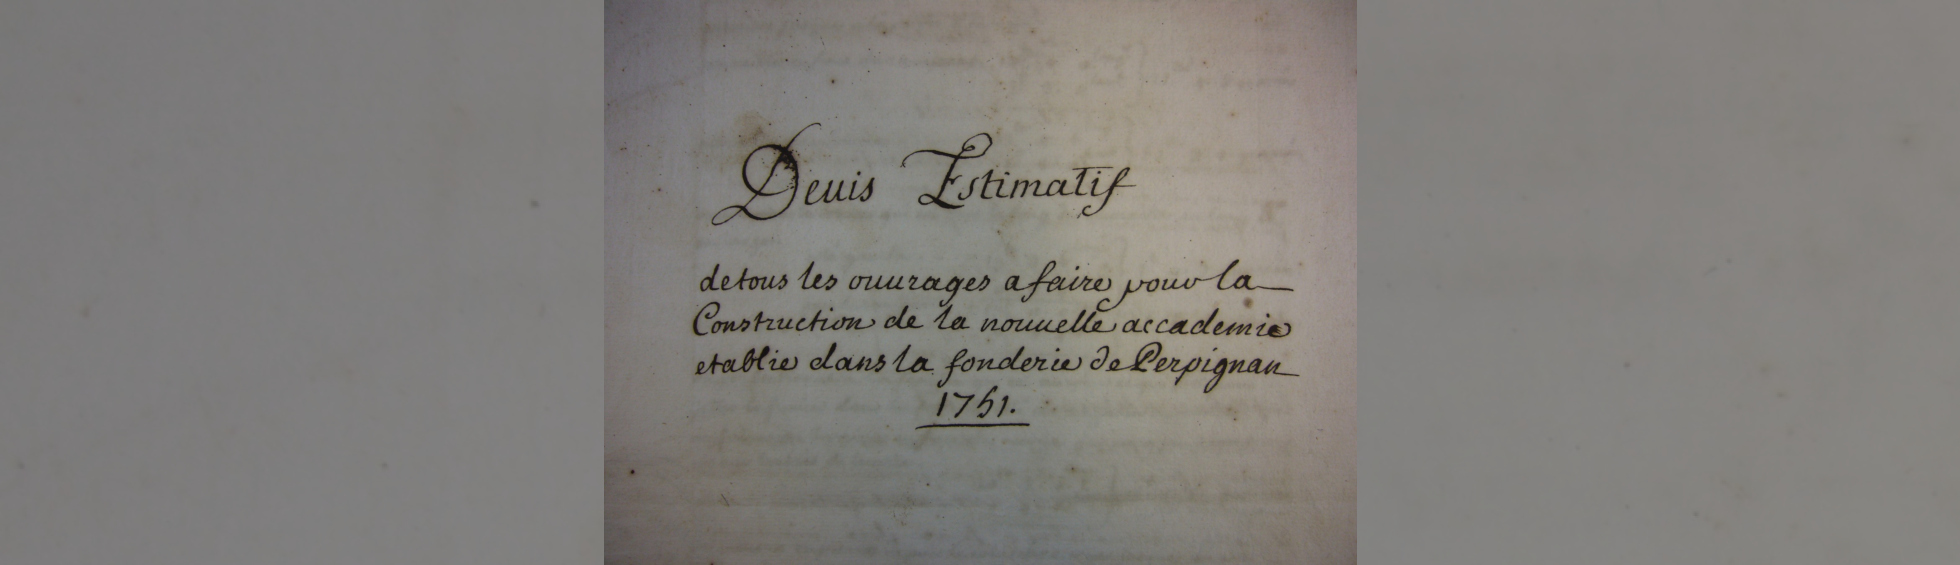 Deuis Estimatif
detous les ouurages a faire pour la
Construction de la nouuelle accademie
etablie dans la fonderie de Perpignan
1751.